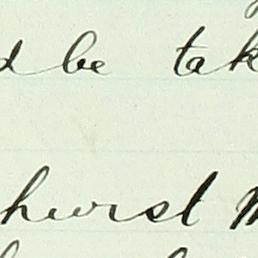 d be tak
hurst